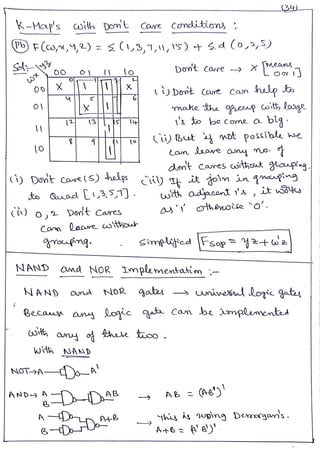 (34)
K-Map's with Don't Care conditions :
(Pb) F(w,x,y,z) = ≤ (1,3,7,11,15) + ≤ d (0,2,5)
Sol:- yz
wx 00 01 11 10
00 X 1 1 X
01 4 X 1 6
11 12 13 1 14
10 8 9 1 10
Don't care → X [means 0 or 1]
(i) Don't care can help to
make the group with large
1's to become a big.
(ii) But if not possible we
can leave any no. of
don't cares without grouping.
(iii) If it join in grouping
with adjacent 1's, it works
as '1' otherwise '0'.
(i) Don't care (5) helps
to Quad [1,3,5,7].
(ii) 0,2 Don't Cares
can leave without
grouping.
Simplified F SOP = yz + w'z
NAND and NOR Implementation :-
NAND and NOR gates → universal logic gates
Because any logic gate can be implemented
with any of these two.
with NAND
NOT → A A'
AND → A B AB → AB = (AB)')'
A B A+B → This is using Demorgan's.
A+B = (A'B')'